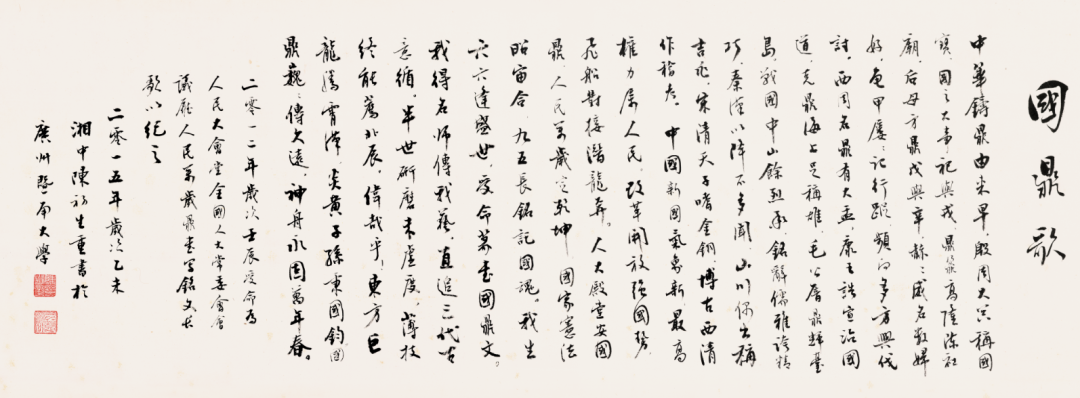 國鼎歌
中華鑄鼎由來早，殷周大器稱國
寶。國之大事祀與戎，鼎鼐高陳宗社
廟。后母方鼎戊與辛，赫赫威名數婦
好。龜甲屢屢記行蹤，頻向多方興伐
討。西周名鼎有大盂，康王誥宣治國
道。克鼎海上足稱雄，毛公厝鼎歸臺
島。戰國中山餘烈承，銘辭儒雅誇精
巧。秦漢以降不多聞，山川偶出稱
吉兆。宋清天子嗜金銅，博古西清
作稽考。中國新國氣象新，最高
權力屬人民。改革開放強國勢，
飛船對接潛龍奔。人大殿堂安國
鼎，人民萬歲定乾坤。國家憲法
昭宙合，九五長銘記國魂。我生
六六逢盛世，受命篆書國鼎文。
我得名師傳我藝，直追三代古
意循。半世研磨未虛度，薄技
終能薦北辰。偉哉乎！東方巨
龍騰霄漢，炎黃子孫東國鈞。國
鼎巍巍傳久遠，神舟永固萬年春。
二零一二年歲次壬辰受命為
人民大會堂全國人大常委會會
議廳人民萬歲鼎書寫銘文長
歌以紀之
二零一五年歲次乙未
湘中陳初生重書於
廣州暨南大學